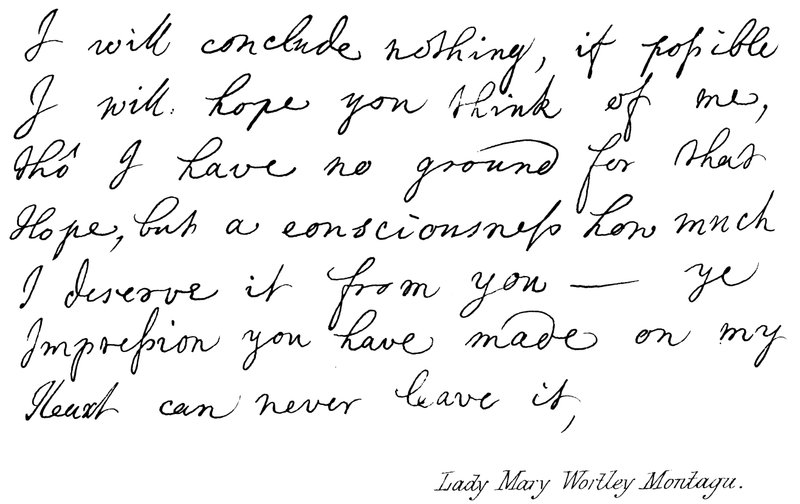 I will conclude nothing, if poſsible
I will hope you think of me,
thô I have no ground for that
Hope, but a consciousneſs how much
I deserve it from you — ye
Impreſsion you have made on my
Heart can never leave it,
Lady Mary Wortley Montagu.